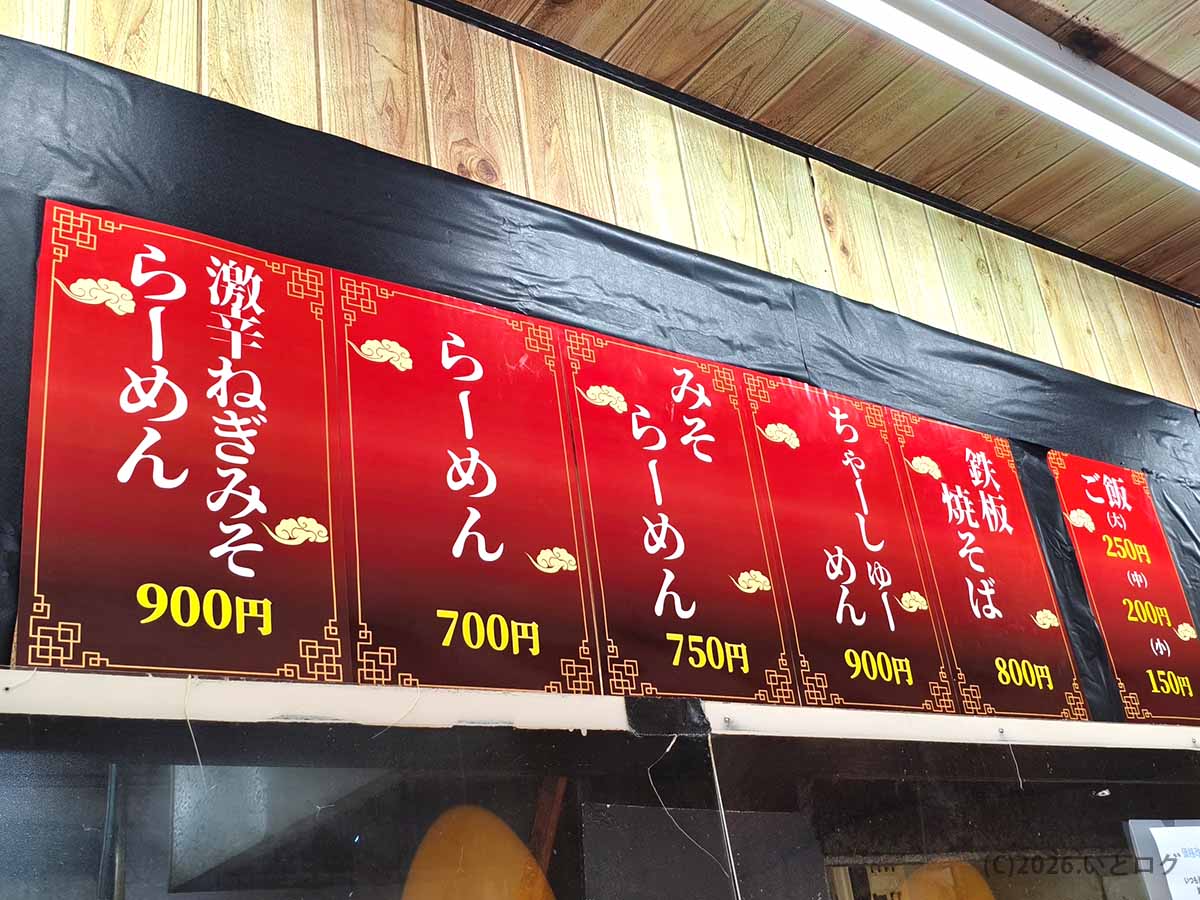 激辛ねぎみそ
らーめん
900円
らーめん
700円
みそ
らーめん
750円
ちゃーしゅー
めん
900円
鉄板
焼そば
800円
ご飯
(大)
250円
(中)
200円
(小)
150円
(C)2026.いとログ